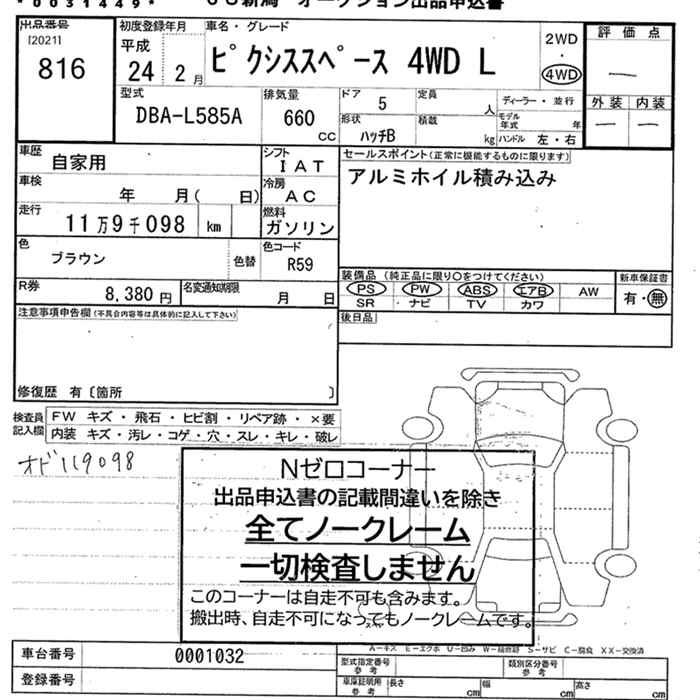 *0031449*
ＪＵ新潟 オークション出品申込書
出品番号
[2021]
816
初度登録年月
平成
24 2月
車名・グレード
ピクシススペース 4WD L
2WD
・
4WD
評価点
―
外装 内装
― ―
型式
DBA-L585A
排気量
660
CC
ドア
5
形状
ハッチB
定員
人
積載
kg
ディーラー・並行
モデル年式 年
ハンドル 左・右
車歴
自家用
シフト
IAT
車検
年 月( 日)
冷房
AC
走行
11万9千098 km
燃料
ガソリン
色
ブラウン
色替
色コード
R59
R券
8,380円
名変通知期限
月 日
セールスポイント(正常に機能するものに限ります)
アルミホイル積み込み
装備品 (純正品に限り〇をつけてください)
PS PW ABS エアB AW
SR ・ ナビ TV カワ
新車保証書
有・無
後日品
注意事項申告欄(不具合内容等は具体的に記入して下さい)
修復歴 有〔箇所 〕
検査員記入欄
FW キズ・飛石・ヒビ割・リペア跡・×要
内装 キズ・汚レ・コゲ・穴・スレ・キレ・破レ
オド119098
Nゼロコーナー
出品申込書の記載間違いを除き
全てノークレーム
一切検査しません
このコーナーは自走不可も含みます。
搬出時、自走不可になってもノークレームです。
A-キズ E-エクボ U-凹み W-補修跡 S-サビ C-腐食 XX-交換済
車台番号
0001032
登録番号
型式指定番号
参考
類別区分番号
参考
車庫証明用
参考
長さ cm
幅 cm
高さ cm